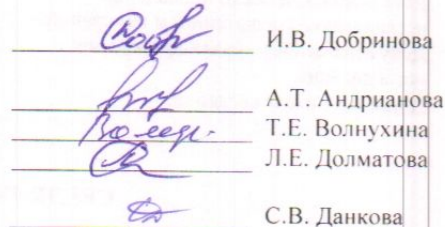 И.В. Добринова
А.Т. Андрианова
Т.Е. Волнухина
Л.Е. Долматова
С.В. Данкова